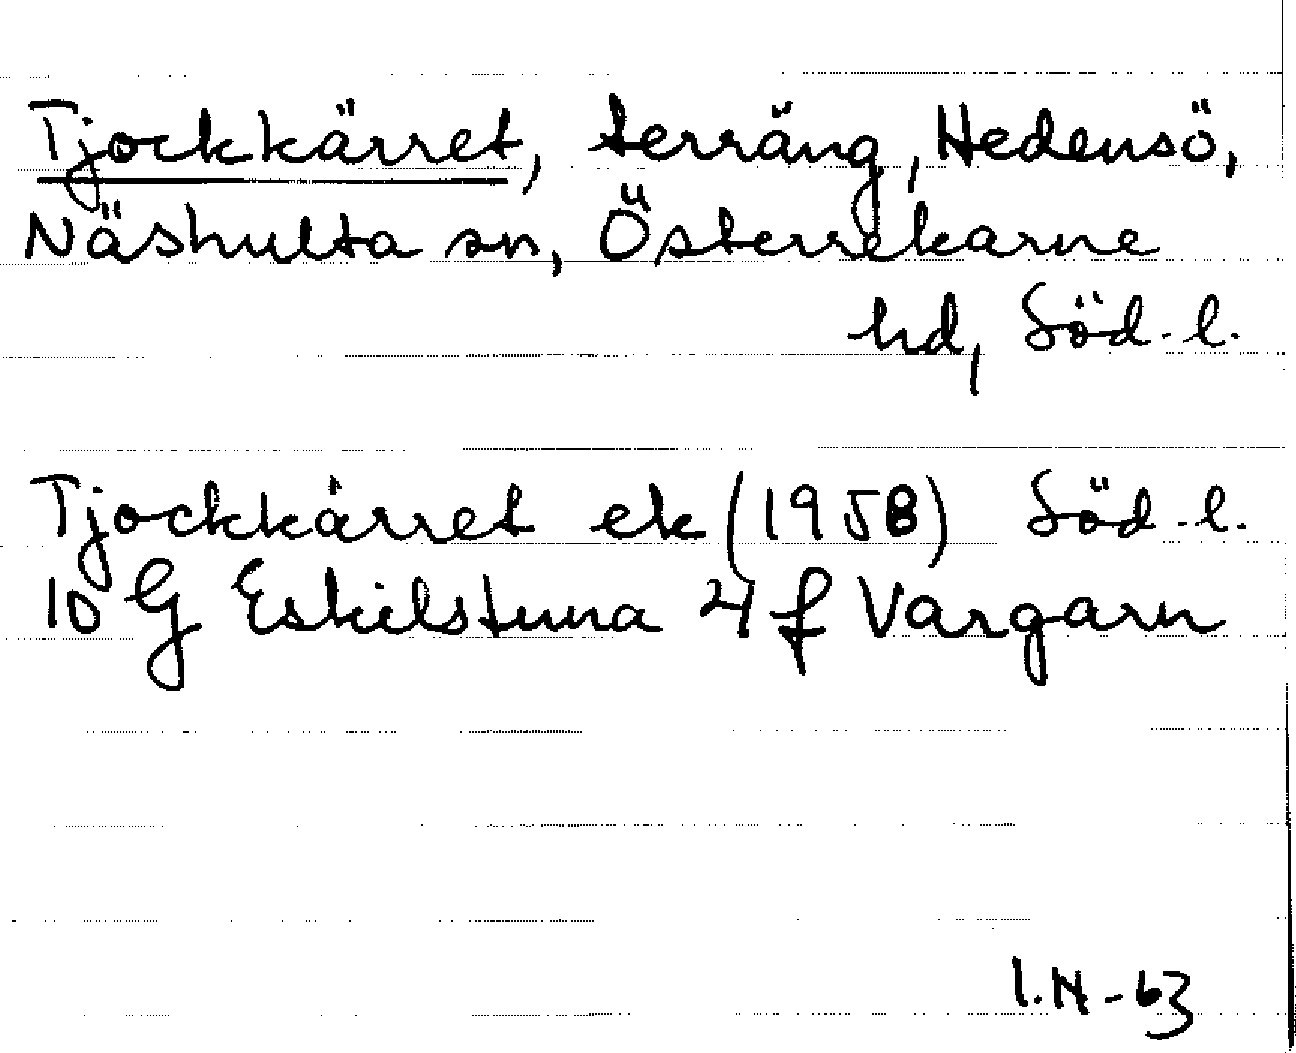 Tjockkärret, terräng, Hedensö,
Näshulta sn, Österrekarne
hd, Söd.l.
Tjockkärret ek (1958) Söd.l.
10 G Eskilstuna 4 f Vargarn
I.N-63